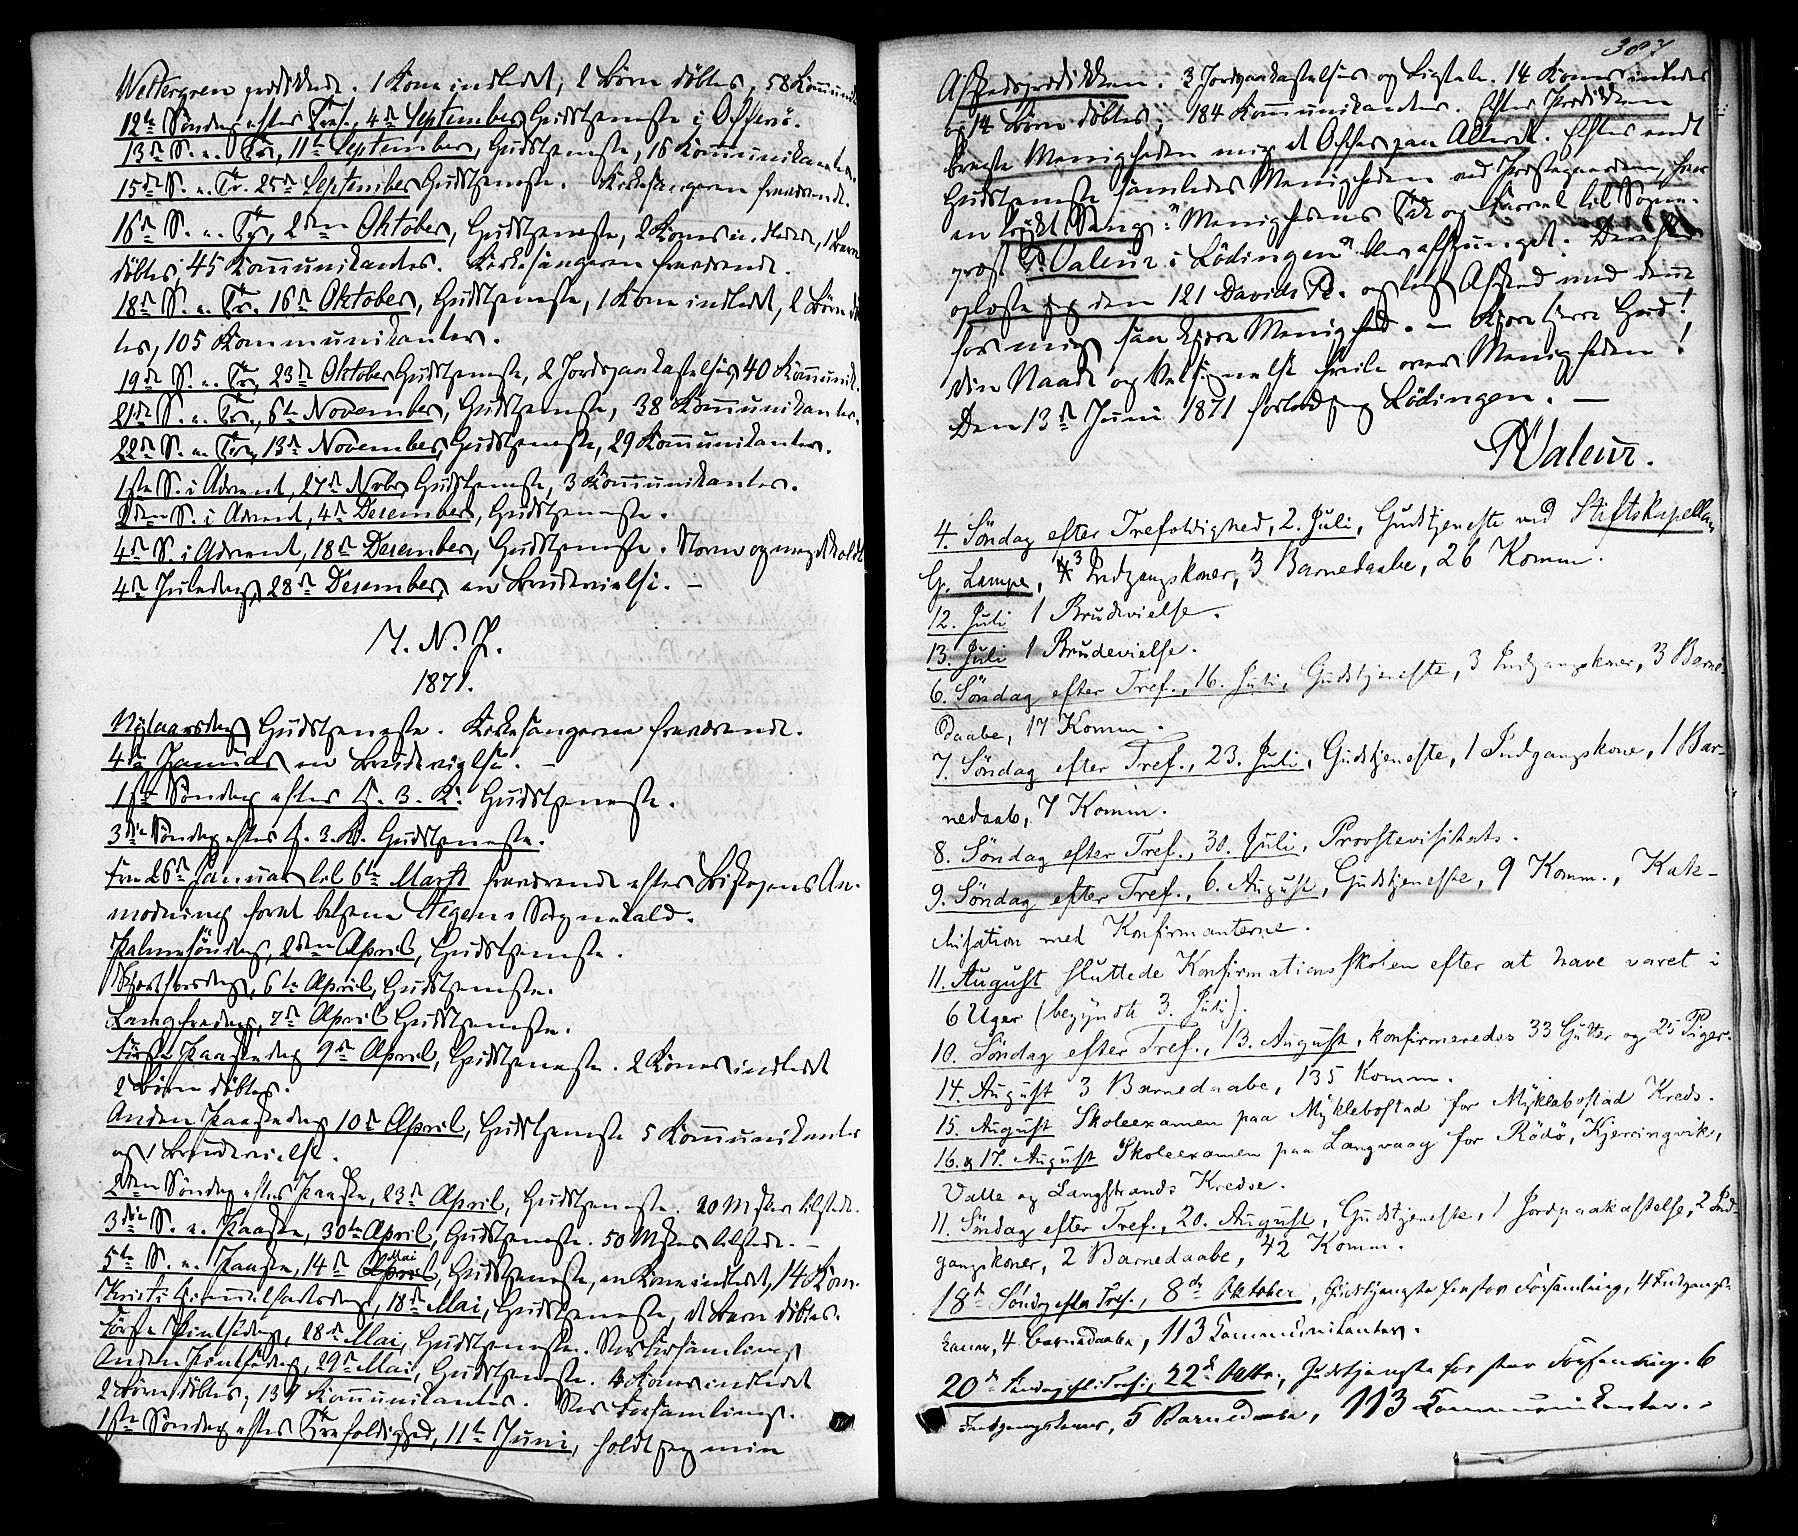 Wettergren prædikede. 1 Kone indledet, 2 Børn döbtes, 58 Kommunik
12te Söndag efter Tref., 4de September, Gudstjeneste i Offersö.
13de S. e. Tr., 11te September, Gudstjeneste, 16 Kommunikanter.
15de S. e. Tr. 25de September Gudstjeneste. Kirkesangeren fraværende.
16de S. e. Tr., 2den Oktober, Gudstjeneste, 2 Koner indledede, 1 Barn
döbtes, 45 Kommunikanter. Kirkesangeren fraværende.
18de S. e. Tr. 16de Oktober, Gudstjeneste, 1 Kone indledet, 2 Börn döb
tes, 105 Kommunikanter.
19de S. e. Tr. 23de Oktober Gudstjeneste, 2 Jordpaakastelser, 40 Kommunik.
21de S. e. Tr., 6te November, Gudstjeneste, 38 Kommunikanter.
22de S. e. Tr., 13de November, Gudstjeneste, 29 Kommunikanter.
1ste S. i Advent, 27de Novbr. Gudstjeneste, 3 Kommunikanter.
2den S. i Advent, 4de Desember, Gudstjeneste.
4de S. i Advent, 18de Desember, Gudstjeneste. Storm og meget koldt
4de Juledag, 28de Desember, en Brudevielse. —
I. N. J.
1871.
Nytaarsdag Gudstjeneste. Kirkesangeren fraværende.
4de Januar en Brudevielse. —
1ste Söndag efter H. 3. K. Gudstjeneste.
3die Söndag efter H. 3. K. Gudstjeneste.
Fra 26de Januar til 6te Marts fraværende efter Biskopens An-
modning for at betjene Sognekald.
Palmesöndag, 2den April, Gudstjeneste.
Skjærtorsdag, 6te April, Gudstjeneste.
Langfredag, 7de April Gudstjeneste.
Förste Paaskedag 9de April, Gudstjeneste. 2 Koner indledet
2 Börn döbtes.
Anden Paaskedag 10de April, Gudstjeneste 5 Kommunikanter
og 1 Brudevielse.
2den Söndag efter Paaske, 23de April, Gudstjeneste. 20 Msker tilstede.
3die S. e. Paaske, 30te April, Gudstjeneste. 50 Msker tilstede. —
5te S. e. Paaske, 14de Mai, Gudstjeneste, en Kone indledet, 14 Kom.
Kristi Himmelfartsdag, 18de Mai, Gudstjeneste, et Barn döbtes.
Förste Pintsedag, 28de Mai, Gudstjeneste. Stor Forsamling
Anden Pintsedag, 29de Mai, Gudstjeneste. 4 Koner indledet
2 Börn döbtes; 137 Kommunikanter. Stor Forsamling.
1ste Söndag efter Trefoldighed, 11te Juni, holdt jeg min
387
Afskedsprædiken. 3 Jordpaakastelser og Ligtale. 14 Koner indledes
og 14 Börn döbtes; 184 Kommunikanter. Efter Prædiken
bragte Menigheden mig et Offer paa Alteret. Efter endt
Gudstjeneste samledes Menigheden ved Præstegaarden, hvor
en trykt Sang: "Menighedens Tak og Farvel til Sogne-
præst P. Valeur i Lödingen" blev afsunget. Derefter
oplæste jeg den 121 Davids Ps. og tog Afsked med denne
for mig saa kjære Menighed. — Kjære Herre Gud!
din Naade og Velsignelse hvile over Menigheden!
Den 13de Juni 1871 forlod jeg Lödingen. —
P Valeur.
4. Söndag efter Trefoldighed, 2. Juli, Gudstjeneste ved Stiftskapellan
G. Lampe, 3 Indgangskoner, 3 Barnedaabe, 26 Komm.
12. Juli 1 Brudevielse.
13. Juli 1 Brudevielse.
6. Söndag efter Tref., 16. Juli, Gudstjeneste, 3 Indgangskoner, 3 Barne-
daabe, 17 Komm.
7. Söndag efter Tref., 23. Juli, Gudstjeneste, 1 Indgangskone, 1 Bar-
nedaab, 7 Komm.
8. Söndag efter Tref., 30. Juli, Proostevisitats.
9. Söndag efter Tref., 6. August, Gudstjeneste, 9 Komm., Kate-
chisation med Konfirmanterne.
11. August sluttede Konfirmationsskolen efter at have varet i
6 Uger (begyndte 3. Juli).
10. Söndag efter Tref., 13. August, konfirmeredes 33 Gutter og 25 Piger.
14. August 3 Barnedaabe, 135 Komm.
15. August Skoleexamen paa Myklebostad for Myklebostad Kreds.
16. & 17. August Skoleexamen paa Langvaag for Rödö, Kjerringvik,
Valle og Langstrands Kredse.
11. Söndag efter Tref., 20. August, Gudstjeneste, 1 Jordpaakastelse, 2 Ind-
gangskoner, 2 Barnedaabe, 42 Komm.
18de Söndag efter Tref., 8de Oktober, Gudstjeneste for stor Forsamling, 4 Indgangs-
koner, 4 Barnedaabe, 113 Kommunikanter.
20de Söndag eft. Tref., 22de Oktbr., Gudstjeneste for stor Forsamling. 6
Indgangskoner, 5 Barnedaabe, 113 Kommunikanter. —